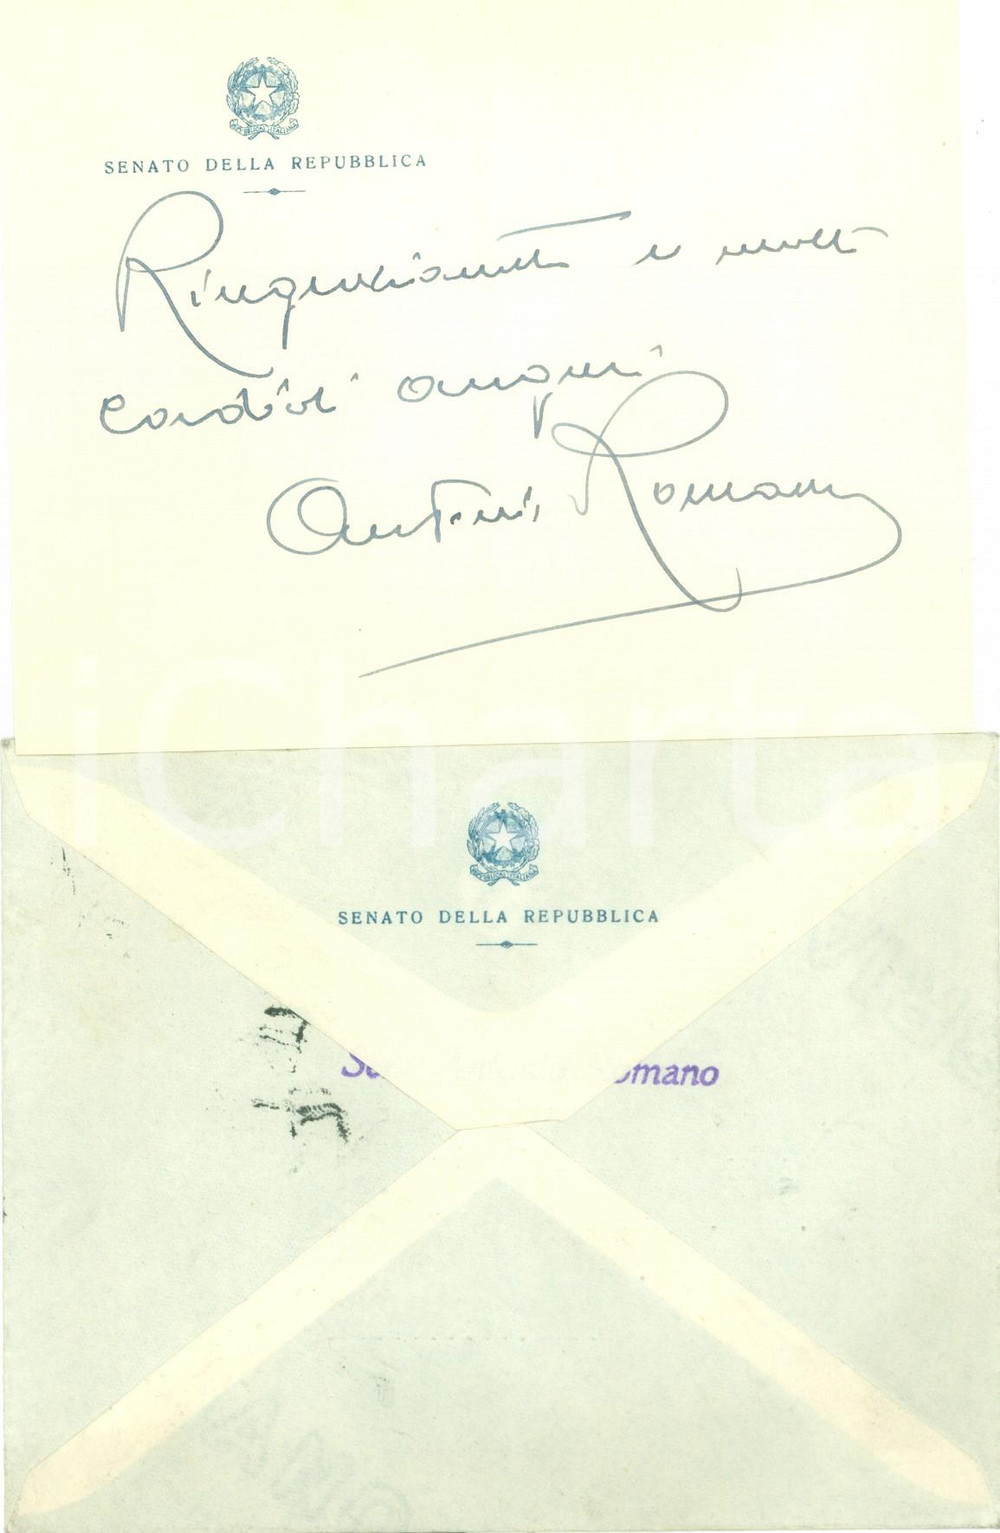 REPUBBLICA ITALIANA
SENATO DELLA REPUBBLICA
Ringraziamenti e molti
cordiali auguri
Antonio Romano
iCharta
REPUBBLICA ITALIANA
SENATO DELLA REPUBBLICA
omano